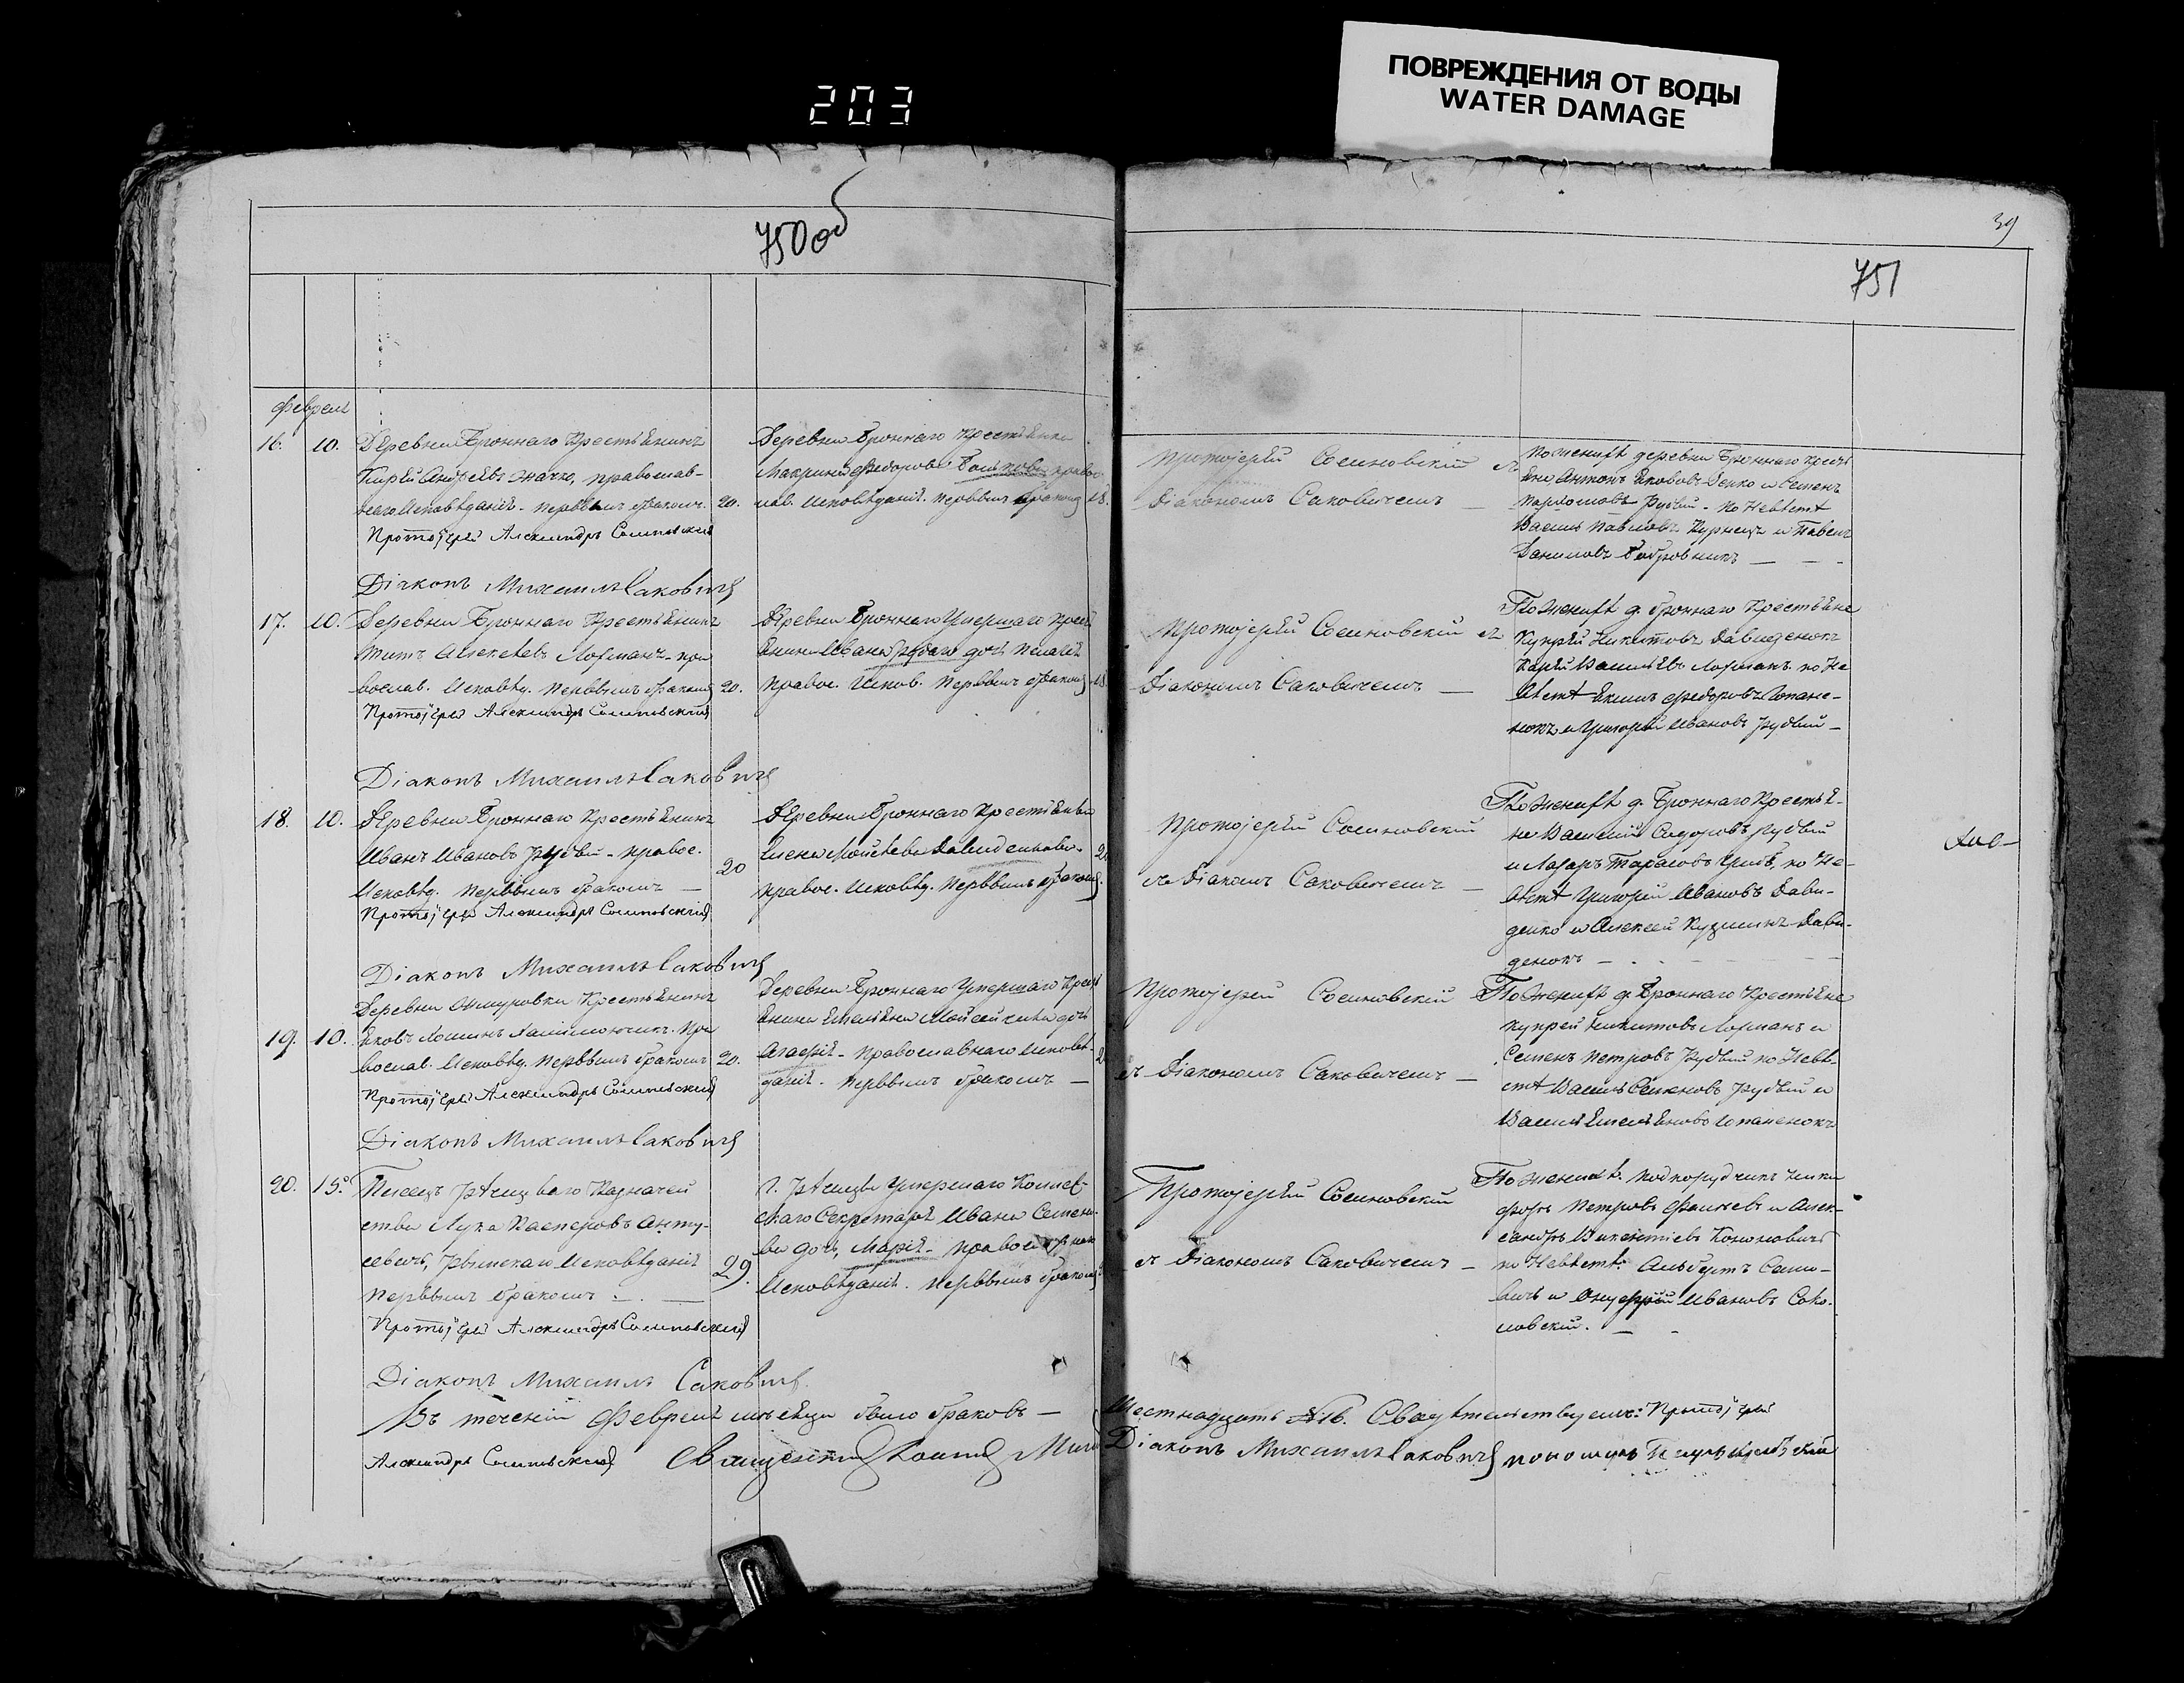 203
ПОВРЕЖДЕНИЯ ОТ ВОДЫ
WATER DAMAGE
750 об
39
751
Февраль
16. 10. Деревни Броннаго Крестьянинъ
Кирѣй Андреевъ православ-
наго Исповѣданія. первымъ бракомъ. 20.
Протоіерей Александръ Сосиновскій
Діаконъ Михаилъ Саковичъ
Деревни Броннаго Крестьянка
Макрина Федорова правос
лав. Исповѣданія. первымъ бракомъ 18.
Протоіерей Сосиновскій съ
Діакономъ Саковичемъ —
По женихѣ деревни Броннаго Кресть
яне Антонъ Яковов и Семенъ
Рудый. По Невѣстѣ
Василь Павловъ и Павелъ
Даниловъ Бобровникъ — — -
17. 10. Деревни Броннаго Крестьянинъ
Титъ Алексѣевъ Лозманъ. пра
вослав. Исповѣд. первымъ бракомъ 20.
Протоіерей Александръ Сосиновскій
Діаконъ Михаилъ Саковичъ
Деревни Броннаго Умершаго Крест
янина Ивана Рудаго дочь Пелагія
правос. Испов. первымъ бракомъ 18.
Протоіерей Сосиновскій съ
Діакономъ Саковичемъ —
По женихѣ д. Броннаго Крестьяне
Купрѣй Никитовъ Давиденокъ
Василіевъ Лозманъ. по Не
вѣстѣ Якимъ Федоровъ Лопане-
нокъ и Григорій Ивановъ Рудый —
18. 10. Деревни Броннаго Крестьянинъ
Иванъ Ивановъ Рудый — правос.
Исповѣд. первымъ бракомъ — 20
Протоіерей Александръ Сосиновскій
Діаконъ Михаилъ Саковичъ
Деревни Броннаго Крестьянка
Елена Мойсѣева Давиденкова.
правос. Исповѣд. первымъ бракомъ.
Протоіерей Сосиновскій
съ Діакономъ Саковичемъ —
По женихѣ д. Броннаго Крестья-
не Василій Сидоровъ Рудый
и Лазаръ Тарасовъ по Не-
вѣстѣ Григорій Ивановъ Дави-
денко и Алексей Кузминъ Дави-
денокъ —
19. 10. Деревни Крестьянинъ
Яковъ пра
вослав. Исповѣд. первымъ бракомъ 20.
Протоіерей Александръ Сосиновскій
Діаконъ Михаилъ Саковичъ
Деревни Броннаго Умершаго Крест
янина Емеліяна дочь
Агафія — православнаго Исповѣ-
данія. первымъ бракомъ —
Протоіерей Сосиновскій
съ Діакономъ Саковичемъ —
По женихѣ д. Броннаго Крестьяне
Купрей Никитовъ Лозманъ и
Семенъ Петровъ Рудый по Невѣ-
стѣ Василь Семеновъ Рудый и
Василь Емеліяновъ Лопаненокъ
20. 15. Писецъ Рѣчицкаго Казначей
ства Лука Касперовъ
Римскаго Исповѣданія
первымъ бракомъ — 29.
Протоіерей Александръ Сосиновскій
Діаконъ Михаилъ Саковичъ.
Г. Рѣчицы Умершаго Коллеж
скаго Секретаря Ивана
дочь, Марія — православнаго
Исповѣданія. первымъ бракомъ
Протоіерей Сосиновскій
съ Діакономъ Саковичемъ —
По женихѣ. подпоручикъ Ники
форъ Петровъ и Алек-
сандръ Викентіевъ Кононовичъ
по Невѣстѣ: Альбертъ
и Онуфрій Ивановъ Соко-
ловскій. — -
Въ теченіи Февраля мѣсяца было браковъ — Шестнадцать №16. Свидѣтельствуемъ: Протоіерей
Александръ Сосиновскій Священникъ Діаконъ Михаилъ Саковичъ пономарь